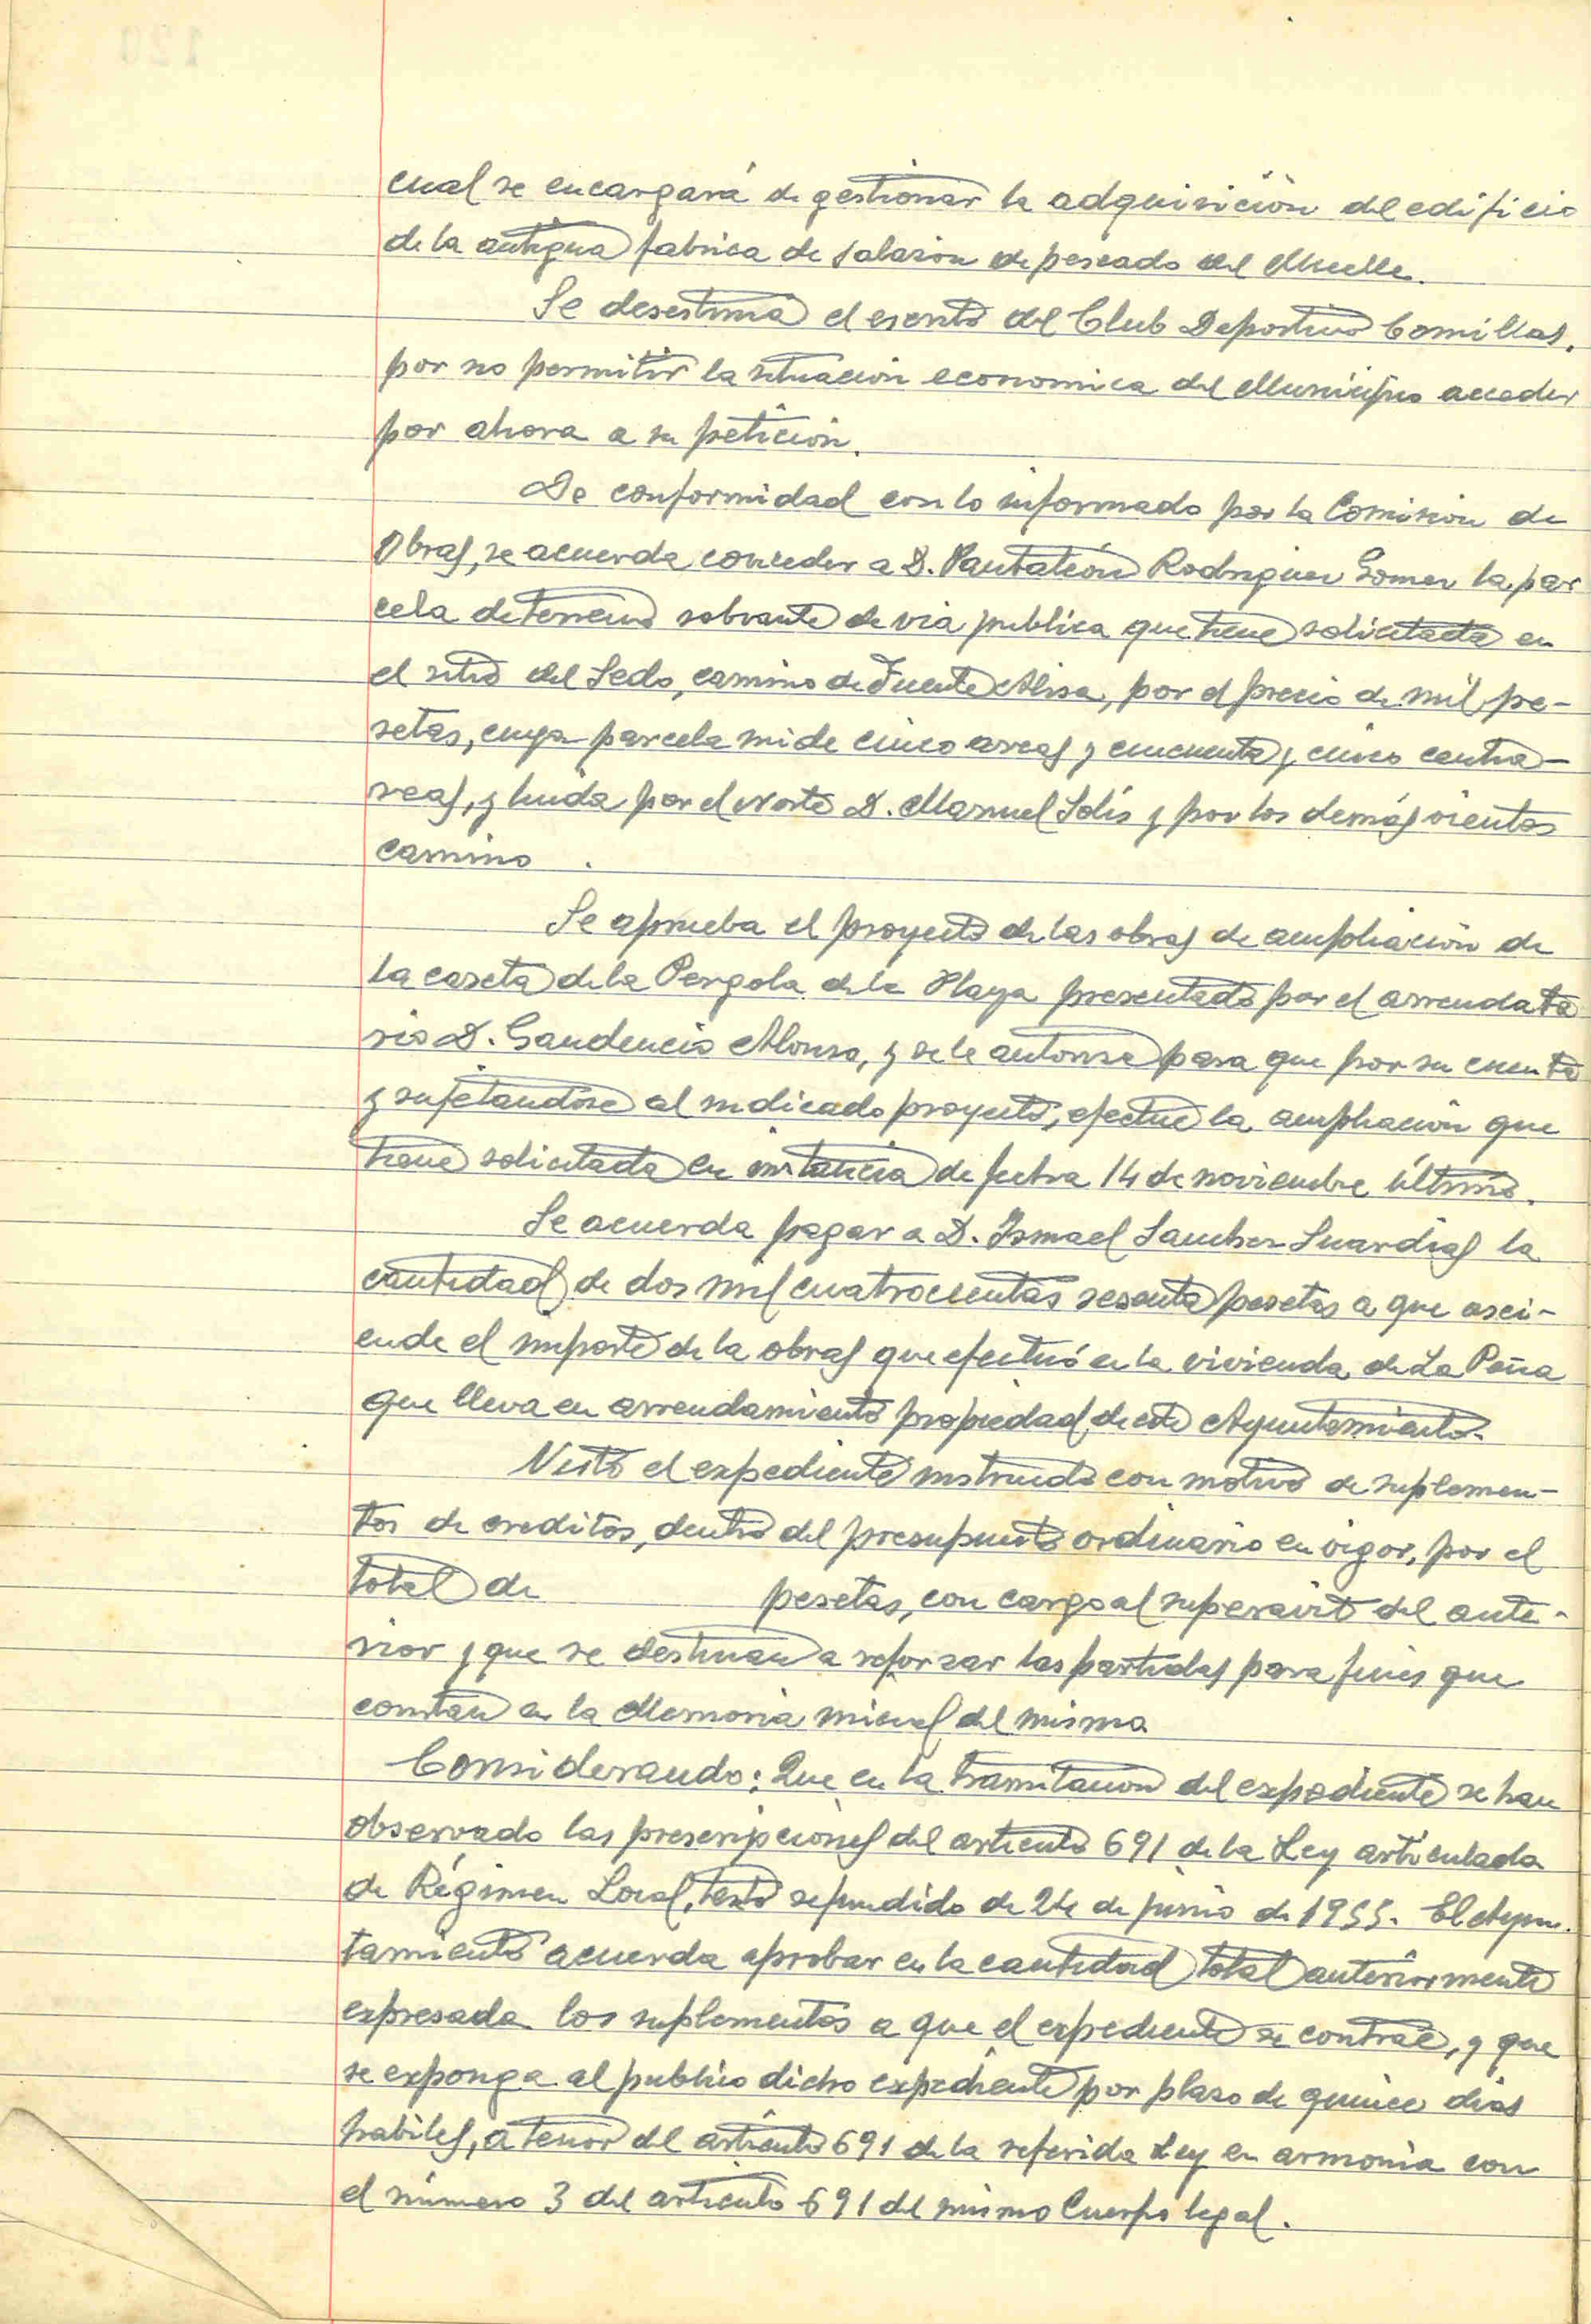 cual se encargará de gestionar la adquisición del edificio
de la antigua fabrica de salazon de pescado del Muelle.
Se desestima el escrito del Club Deportivo Comillas,
por no permitir la situacion economica del Municipio acceder
por ahora a su petición.
De conformidad con lo informado por la Comision de
Obras, se acuerda conceder a D. Pantaleón Rodriguez Gomez la par
cela de terreno sobrante de via publica que tiene solicitada en
el sitio del Sedo, camino de Fuente Alisa, por el precio de mil pe-
setas, cuya parcela mide cinco areas y cincuenta y cinco centia-
reas, y linda por el Norte D. Manuel Solís y por los demás vientos
camino.
Se aprueba el proyecto de las obras de ampliación de
la caseta de la Pergola de la Playa presentado por el arrendata
rio D. Gaudencio Alonso, y se le autoriza para que por su cuenta
y sujetandose al indicado proyecto, efectue la ampliación que
tiene solicitada en instancia de fecha 14 de noviembre último.
Se acuerda pagar a D. Ismael Sanchez Guardias la
cantidad de dos mil cuatrocientas sesenta pesetas a que asci-
ende el importe de la obras que efectuó en la vivienda de La Peña
que lleva en arrendamiento propiedad de este Ayuntamiento.
Visto el expediente instruido con motivo de suplemen-
tos de creditos, dentro del presupuesto ordinario en vigor, por el
total de pesetas, con cargo al superavit del ante-
rior y que se destinan a reforzar las partidas para fines que
constan en la Memoria inicial del misma
Considerando: Que en la tramitacion del expediente se han
observado las prescripciones del articulo 691 de la Ley articulada
de Régimen Local, texto refundido de 24 de junio de 1955. El Ayun-
tamiento acuerda aprobar en la cantidad total anteriormente
expresada los suplementos a que el expediente se contrae, y que
se exponga al publico dicho expediente por plazo de quince dias
habiles, a tenor del articulo 691 de la referida Ley en armonia con
el número 3 del articulo 691 del mismo Cuerpo legal.